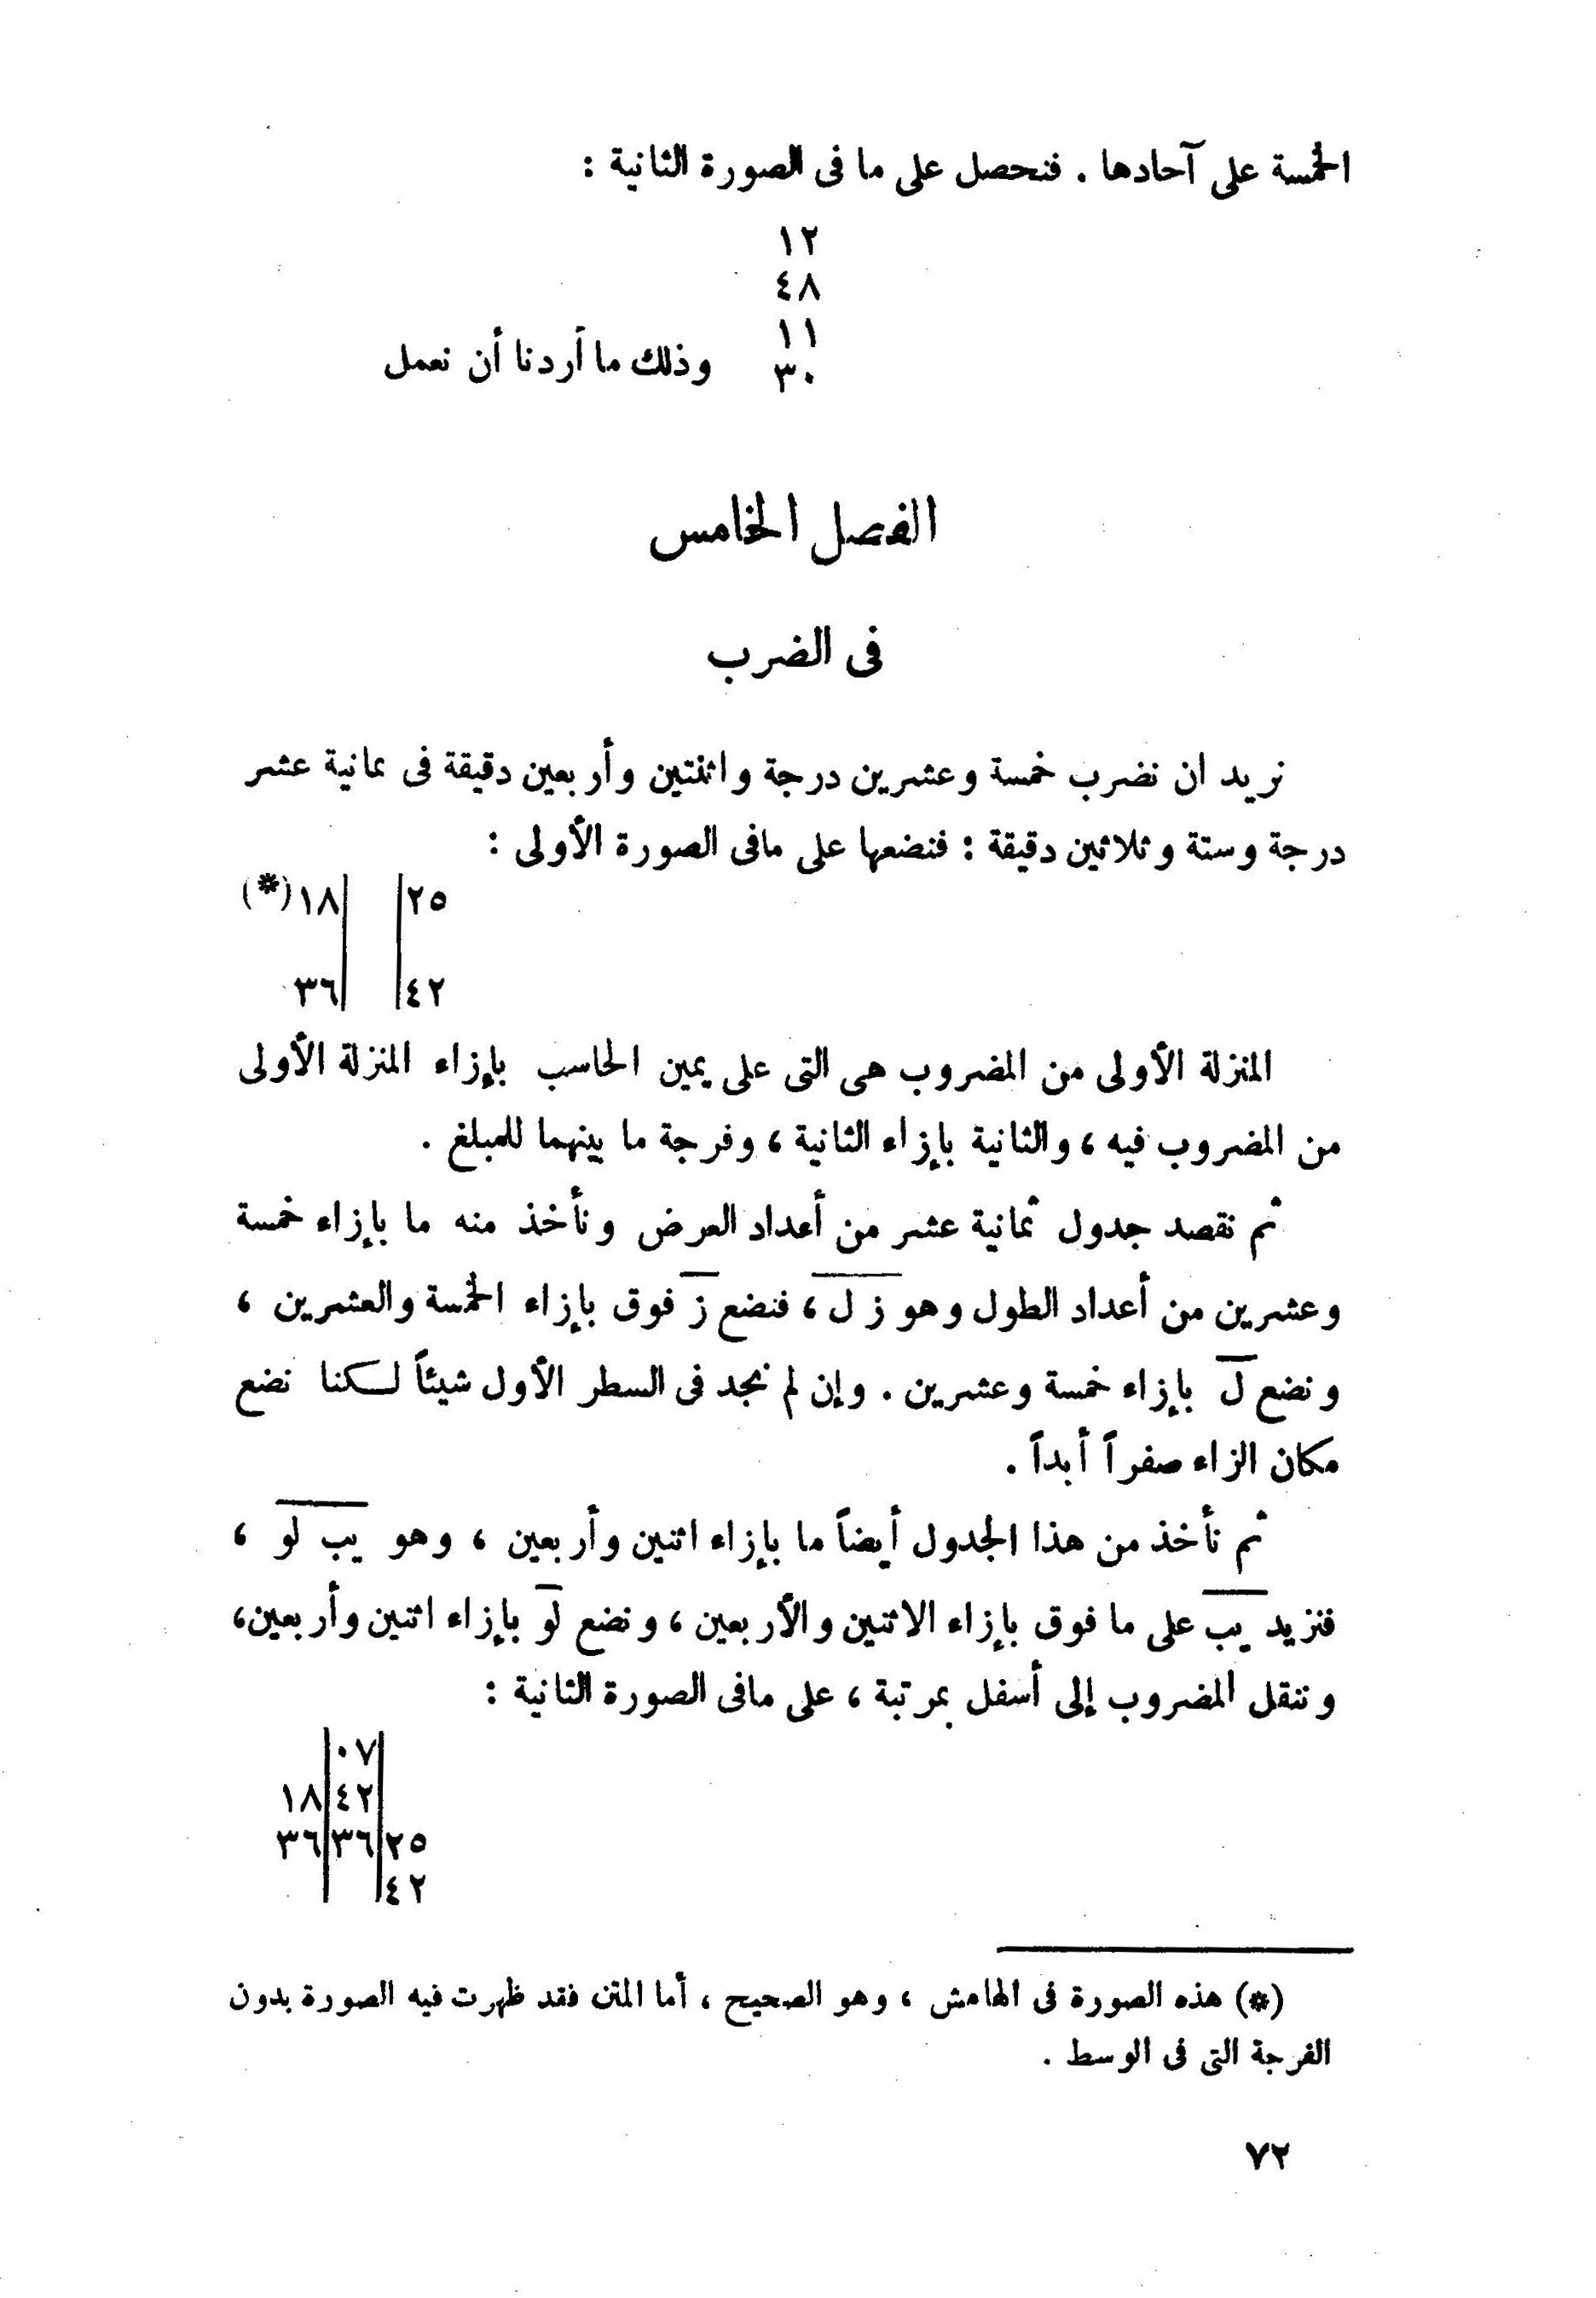 الخمسة على آحادها . فنحصل على ما فى الصورة الثانية :
١٢
٤٨
١١
٣٠ وذلك ما أردنا أن نعمل
الفصل الخامس
فى الضرب
نريد ان نضرب خمسة وعشرين درجة واثنتين وأربعين دقيقة فى ثمانية عشر
درجة وستة وثلاثين دقيقة : فنضعها على مافى الصورة الأولى :
٢٥| |١٨(*)
٤٢| |٣٦
المنزلة الأولى من المضروب هى التى على يمين الحاسب بإزاء المنزلة الأولى
من المضروب فيه ، والثانية بإزاء الثانية ، وفرجة ما بينهما للمبلغ .
ثم نقصد جدول ثمانية عشر من أعداد العرض ونأخذ منه ما بإزاء خمسة
وعشرين من أعداد الطول وهو ز ل ، فنضع ز فوق بإزاء الخمسة والعشرين ،
ونضع ل بإزاء خمسة وعشرين . وإن لم نجد فى السطر الأول شيئاً لكنا نضع
مكان الزاء صفراً أبداً .
ثم نأخذ من هذا الجدول أيضاً ما بإزاء اثنين وأربعين ، وهو يب لو ،
فنزيد يب على ما فوق بإزاء الاثنين والأربعين ، ونضع لو بإزاء اثنين وأربعين،
وننقل المضروب إلى أسفل بمرتبة ، على مافى الصورة الثانية :
|٠٧|
|٤٢|١٨
٢٥|٣٦|٣٦
٤٢| |
(*) هذه الصورة فى الهامش ، وهو الصحيح ، أما المتن فقد ظهرت فيه الصورة بدون
الفرجة التى فى الوسط .
٧٢